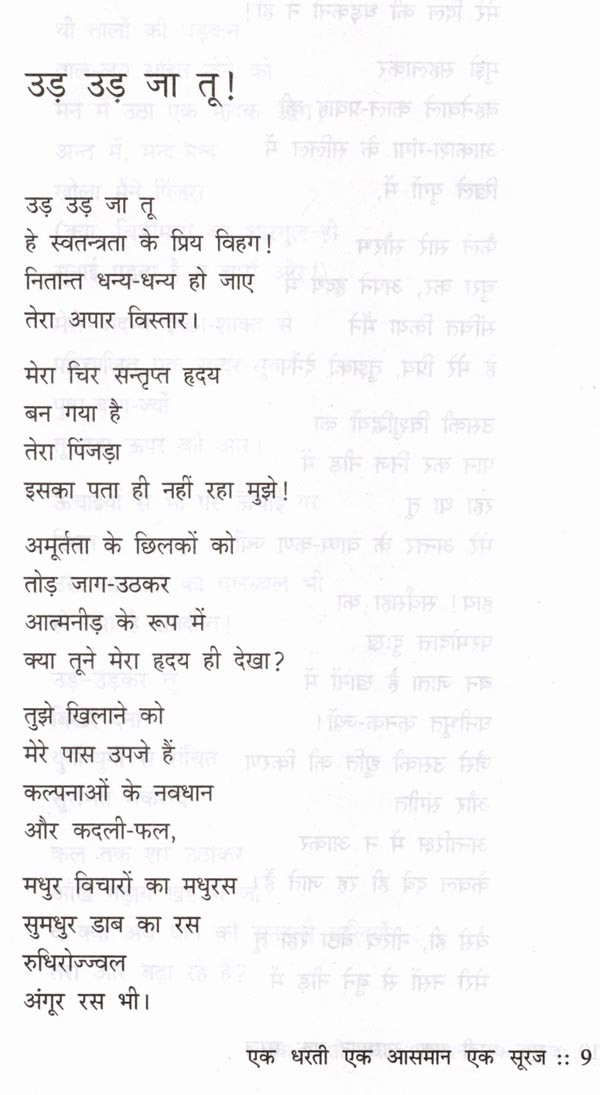 उड़ उड़ जा तू!
उड़ उड़ जा तू
हे स्वतन्त्रता के प्रिय विहग!
नितान्त धन्य-धन्य हो जाए
तेरा अपार विस्तार।
मेरा चिर सन्तृप्त हृदय
बन गया है
तेरा पिंजड़ा
इसका पता ही नहीं रहा मुझे!
अमूर्तता के छिलकों को
तोड़ जाग-उठकर
आत्मनीड़ के रूप में
क्या तूने मेरा हृदय ही देखा?
तुझे खिलाने को
मेरे पास उपजे हैं
कल्पनाओं के नवधान
और कदली-फल,
मधुर विचारों का मधुरस
सुमधुर डाब का रस
रुधिरोज्ज्वल
अंगूर रस भी।
एक धरती एक आसमान एक सूरज :: 9